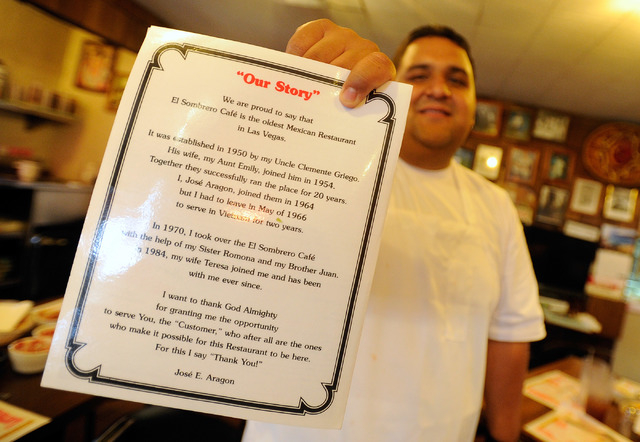 "Our Story"
We are proud to say that
El Sombrero Café is the oldest Mexican Restaurant
in Las Vegas.
It was established in 1950 by my Uncle Clemente Griego.
His wife, my Aunt Emily, joined him in 1954.
Together they successfully ran the place for 20 years.
I, José Aragon, joined them in 1964
but I had to leave in May of 1966
to serve in Vietnam for two years.
In 1970, I took over the El Sombrero Café
with the help of my Sister Romona and my Brother Juan.
In 1984, my wife Teresa joined me and has been
with me ever since.
I want to thank God Almighty
for granting me the opportunity
to serve You, the "Customer," who after all are the ones
who make it possible for this Restaurant to be here.
For this I say "Thank You!"
José E. Aragon